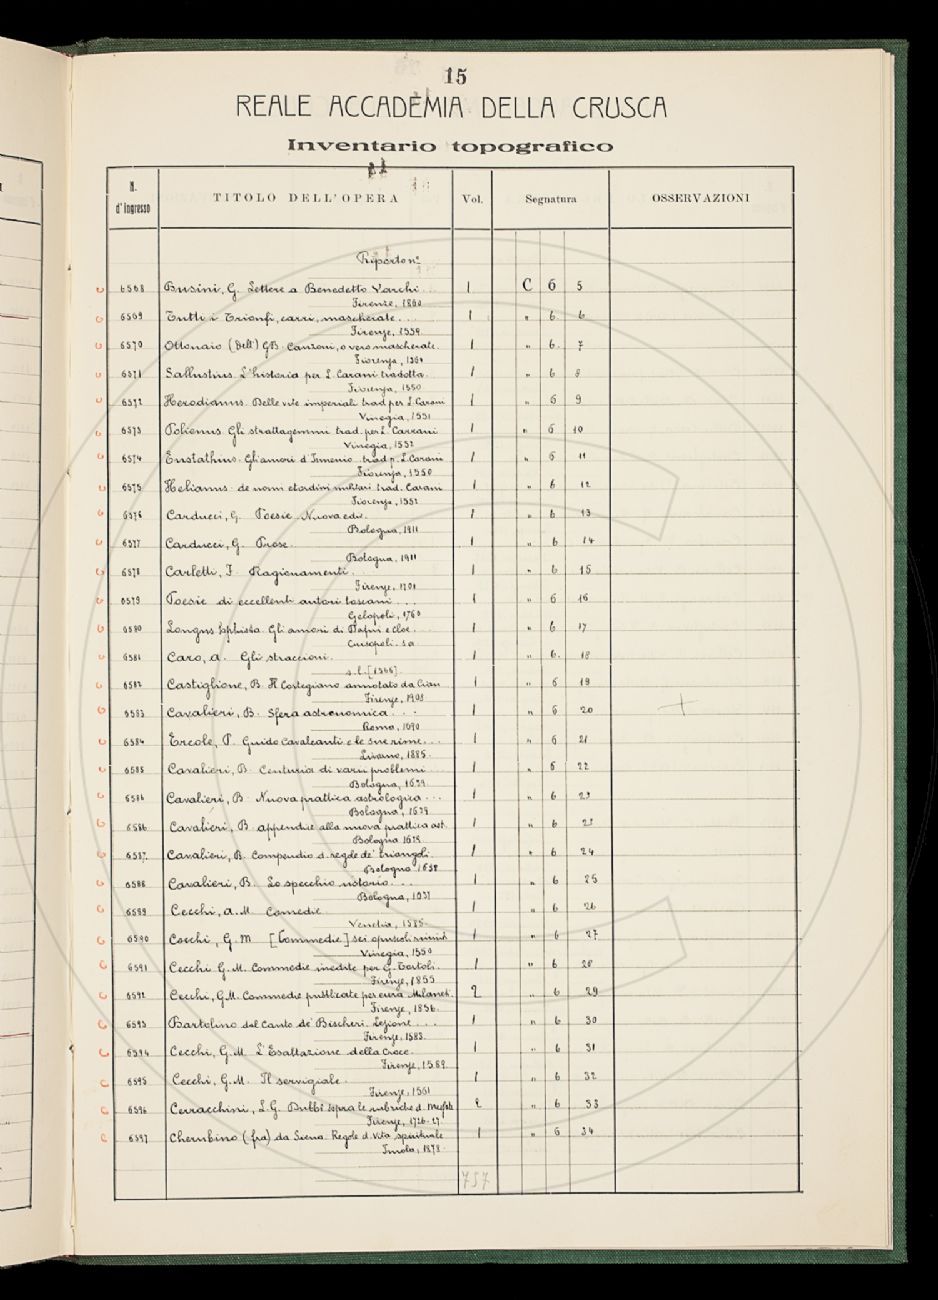 15
REALE ACCADEMIA DELLA CRUSCA
Inventario topografico
N. d'Ingresso TITOLO DELL'OPERA Vol. Segnatura OSSERVAZIONI
Riporto n°
6568 Busini, G. Lettere a Benedetto Varchi... 1 C 6 5
Firenze, 1860
6569 Tutti i Trionfi, carri, mascherate... 1 " 6. 6
Firenze, 1559
6570 Ottonaio (Dell') GB. Canzoni, o vero mascherate. 1 " 6. 7
Fiorenza, 1560
6571 Sallustius. L'historia per L. Carani tradotta. 1 " 6 8
Fiorenza, 1550
6572 Herodianus. Delle vite imperiali trad. per L. Carani 1 " 6 9
Vinegia, 1551
6573 Polienus. Gli strattagemmi trad. per L. Carrani 1 " 6 10
Vinegia, 1552
6574 Eustathius. Gli amori d'Ismenio trad. p. L. Carani 1 " 6 11
Fiorenza, 1550
6575 Helianus. de nomi et ordini militari trad. Carani 1 " 6 12
Fiorenza, 1552
6576 Carducci, G. Poesie. Nuova ediz. 1 " 6 13
Bologna, 1911
6577 Carducci, G. Prose. 1 " 6 14
Bologna, 1911
6578 Carletti, F. Ragionamenti. 1 " 6 15
Firenze, 1701
6579 Poesie di eccellenti autori toscani... 1 " 6 16
Gelopoli, 1760
6580 Longus Sophista. Gli amori di Dafni e Cloe. 1 " 6 17
Crisopoli. s.a.
6581 Caro, A. Gli straccioni. 1 " 6. 18
s.l. [1566].
6582 Castiglione, B. Il Cortegiano annotato da Cian 1 " 6 19
Firenze, 1908
6583 Cavalieri, B. Sfera astronomica... 1 " 6 20 +
Roma, 1690
6584 Ercole, P. Guido Cavalcanti e le sue rime... 1 " 6 21
Livorno, 1885.
6585 Cavalieri, B. Centuria di varii problemi 1 " 6 22
Bologna, 1639
6586 Cavalieri, B. Nuova prattica astrologica... 1 " 6 23
Bologna, 1639
6586 Cavalieri, B. appendice alla nuova prattica ast. 1 " 6 23
Bologna 1639
6587. Cavalieri, B. Compendio d. regole de' triangoli 1 " 6 24
Bologna 1638
6588 Cavalieri, B. Lo specchio ustorio... 1 " 6 25
Bologna, 1632
6589 Cecchi, G.M. Comedie 1 " 6 26
Venetia, 1585.
6590 Cecchi, G.M. [Commedie] sei opuscoli riuniti 1 " 6 27
Vinegia, 1550
6591 Cecchi G.M. Commedie inedite per G. Tortoli. 1 " 6 28
Firenze, 1855
6592 Cecchi, G.M. Commedie pubblicate per cura Milanesi. 2 " 6 29
Firenze, 1856.
6593 Bartolino dal Canto de' Bischeri. Lezione... 1 " 6 30
Firenze, 1583.
6594 Cecchi, G.M. L'Esaltazione della Croce. 1 " 6 31
Firenze, 1589.
6595 Cecchi, G.M. Il servigiale. 1 " 6 32
Firenze, 1561
6596 Cerracchini, L.G. Dubbi sopra le rubriche d. 2 " 6 33
Firenze, 1726-27
6597 Cherubino (fra) da Siena. Regole d. vita spirituale 1 " 6 34
Imola, 1878.
757